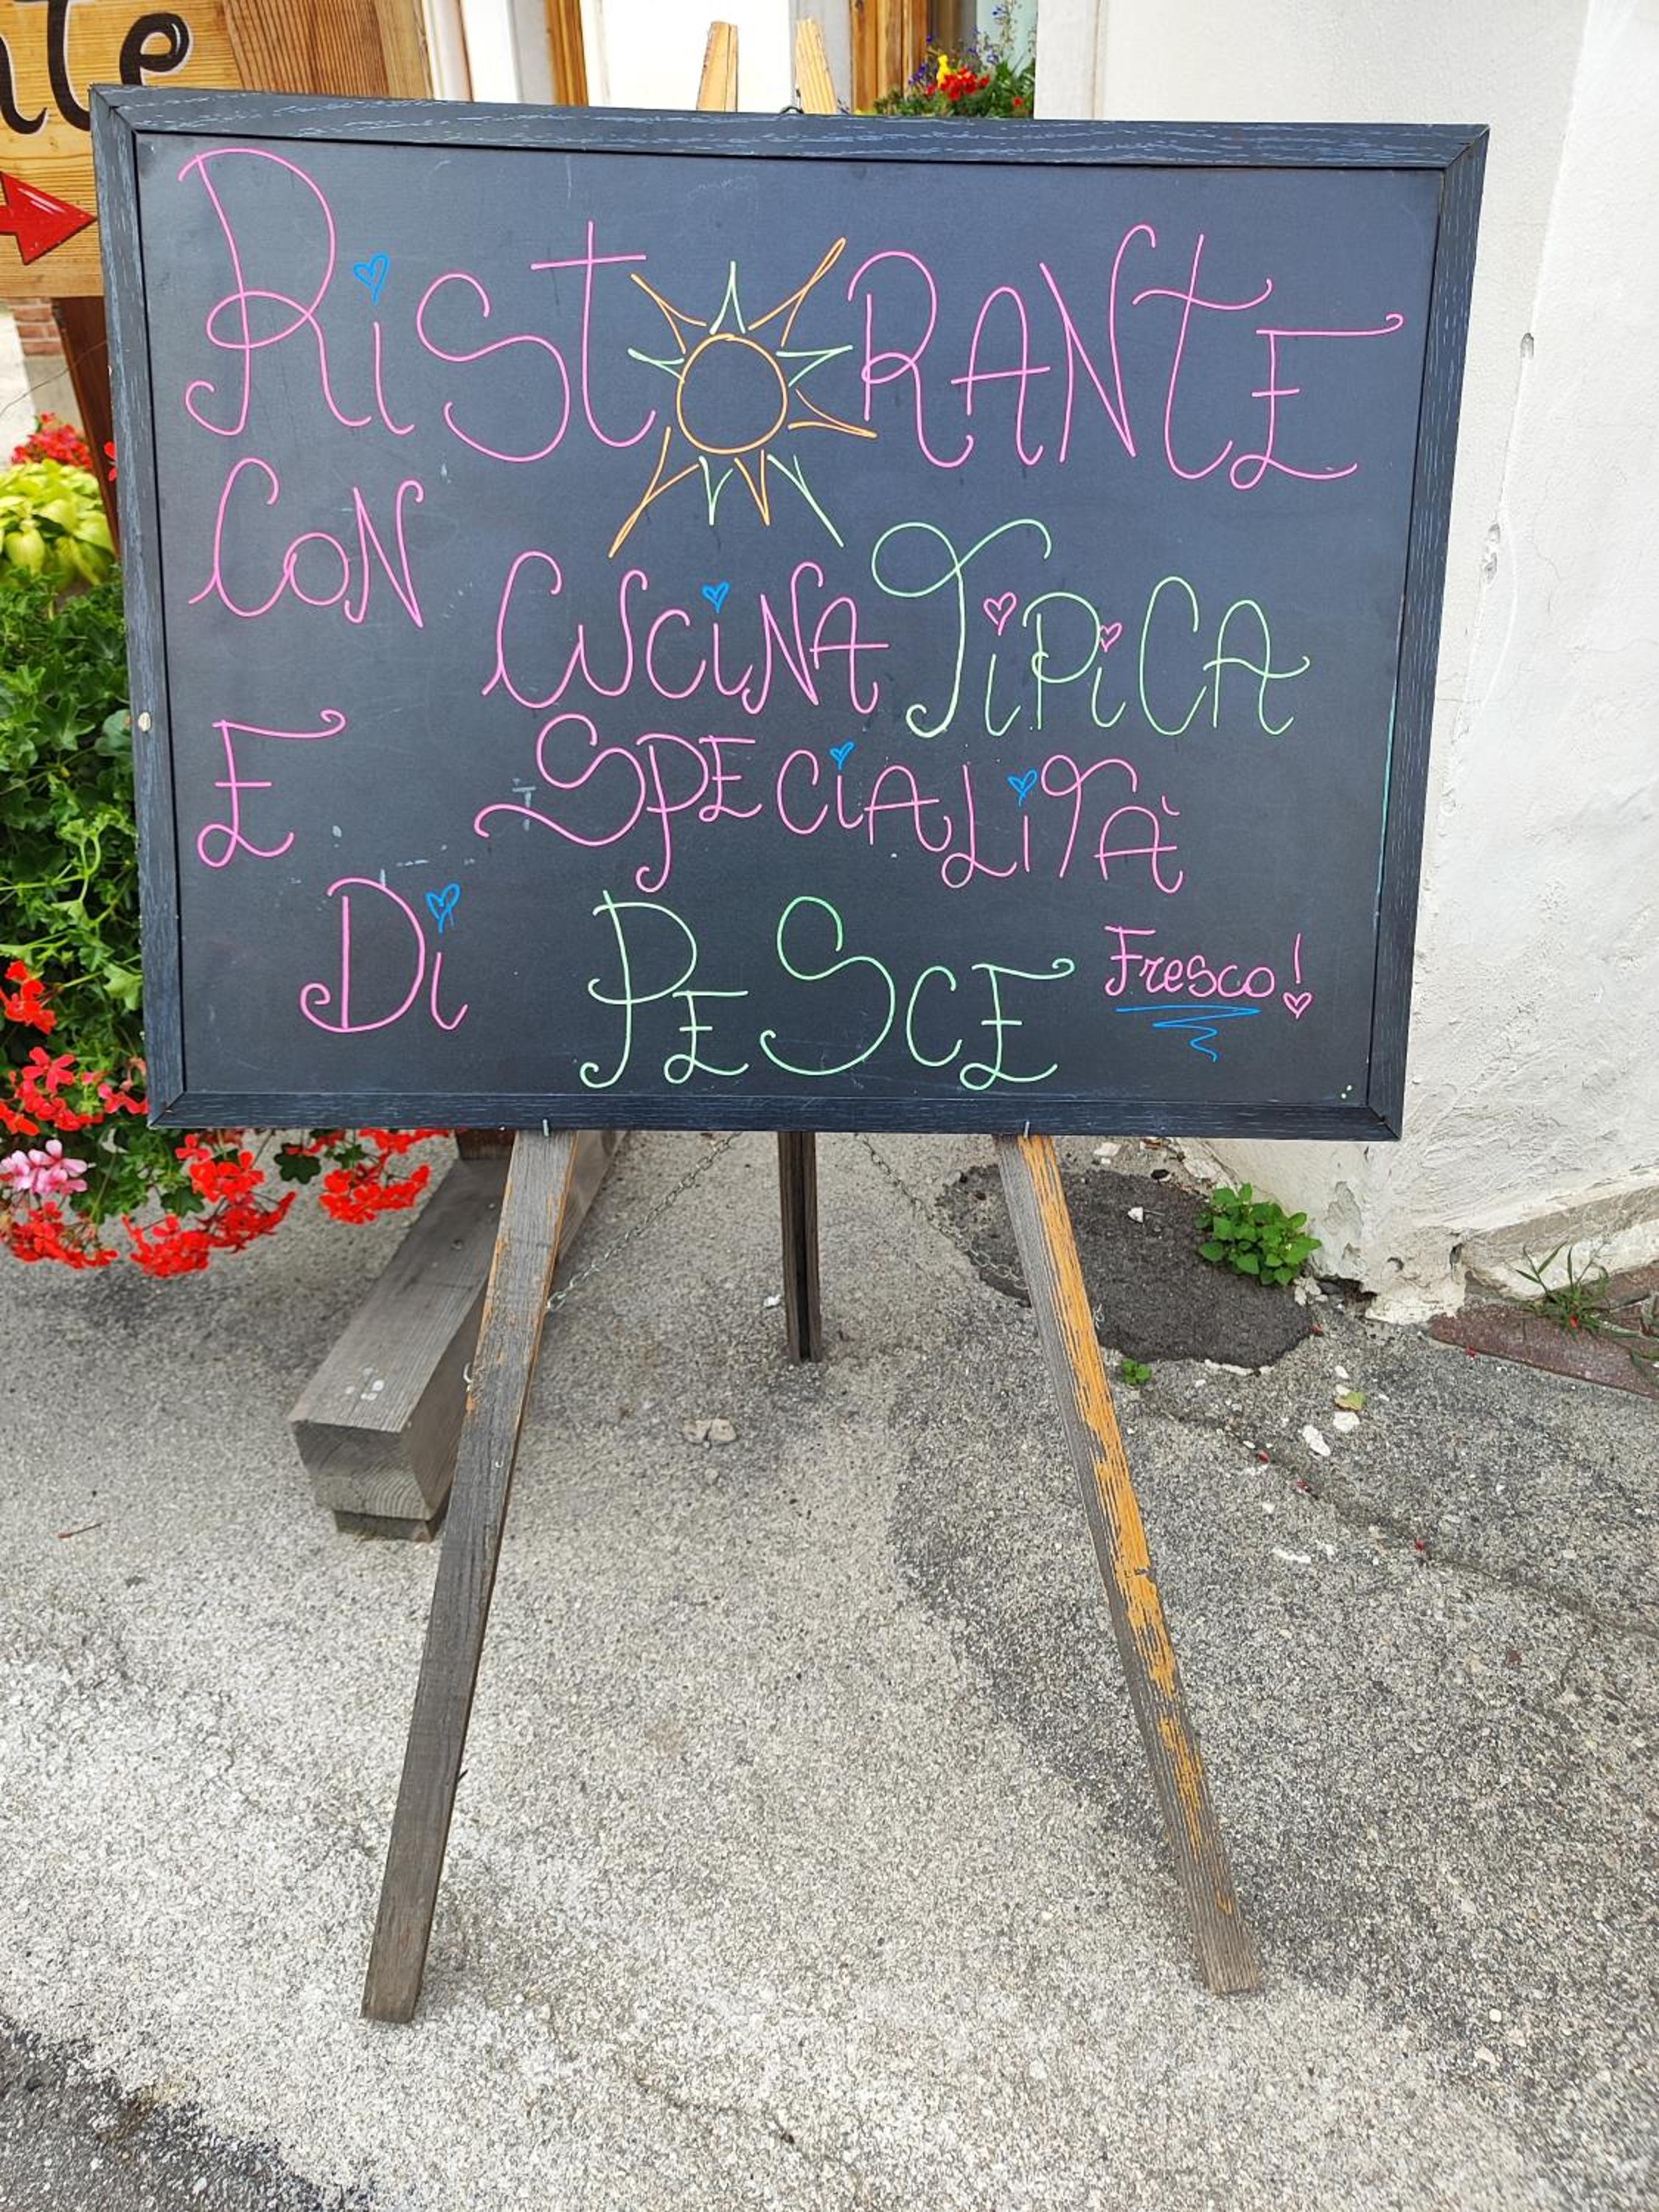 RiSTORANTE
CON CUCiNA TiPiCA
E SPECiALiTÀ
Di PESCE Fresco!